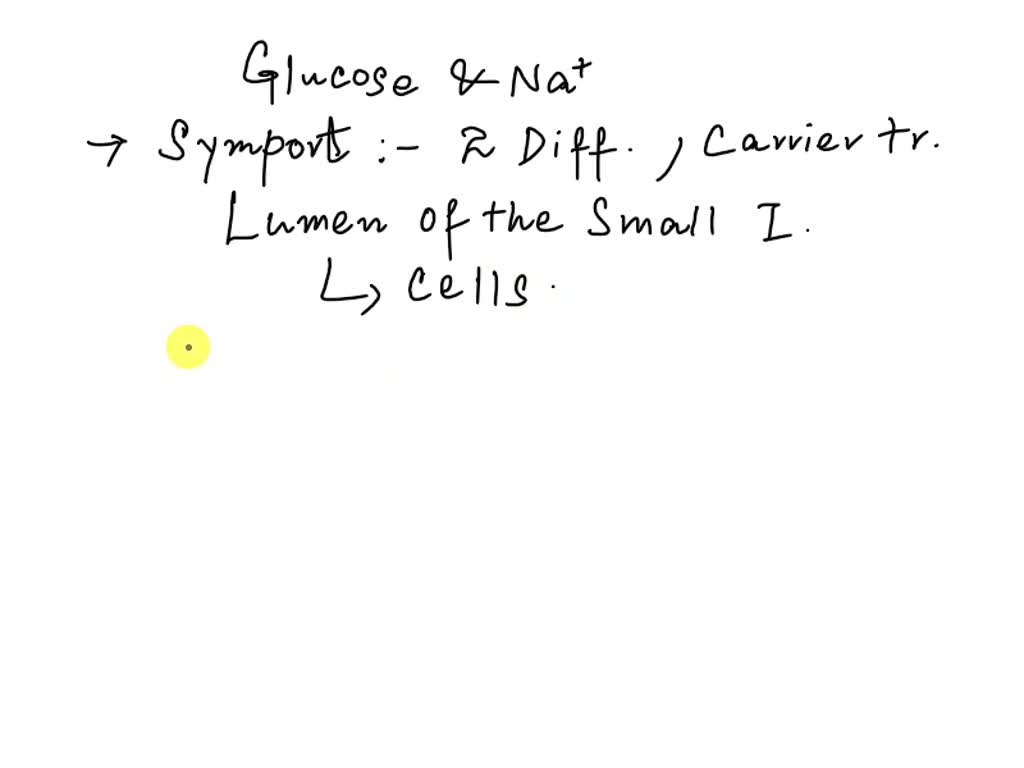 Glucose & Na⁺
→ Symport :- 2 Diff. , Carrier tr.
Lumen of the Small I.
↳ cells.